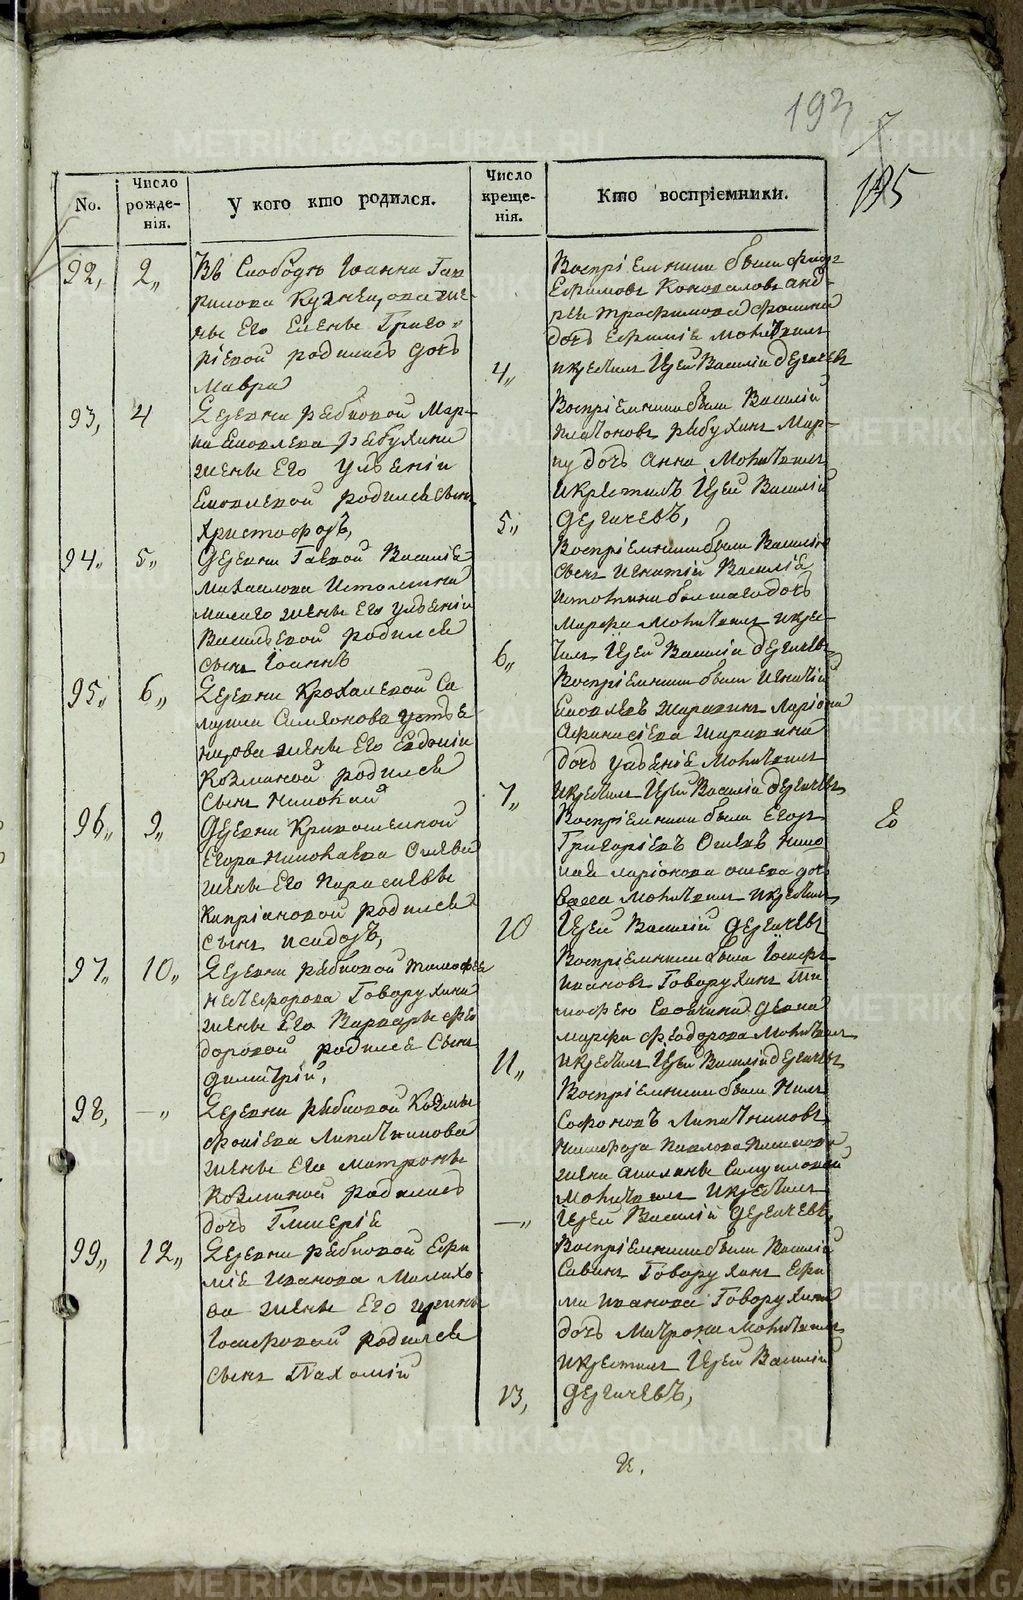 193
195
No.
Число рожденія.
У кого кто родился.
Число крещенія.
Кто воспріемники.
92, 2„
Въ Слободѣ Іоанна Гав
рилова Кузнецова же
нѣ Его Еленѣ Григо„
ріевой родилась дочь
Мавра
4„
Воспріемники были
Ефимовъ Коновалов анд
реи трофимова
дочь
икрестилъ Іерей Василій дергачевъ
93, 4
Деревни рябковой Мар
яковлева рябухина
женѣ Его Улѣяніи
яковлевой родился сынъ
Христофоръ,
5„
Воспріемники были Василій
платоновъ рябухинъ Мар
дочь Анна Молитвилъ
икрестилъ Іерей Василій
дергачевъ,
94„ 5„
деревни Гаевой Василіа
Михаилова Истомина
малаго женѣ Его улѣяніи
Васильевой родился
сынъ Іоаннъ
6„
Воспріемники были Василіа
сынъ игнатій Василіа
истомина большаго дочь
марфа молитвилъ икрес
тилъ Іерей Василій дергачевъ
95„ 6„
деревни Крохалевой Са
муила Симеонова
женѣ Его Евдокіи
Козминой родился
сынъ николай
7„
Воспріемники были игнатій
яковлевъ шаравинъ Ларіона
афанасіева шаравина
дочь улѣяніа молитвилъ
икрестилъ Іерей Василій дергачевъ
96„ 9„
деревни Кривошеиной
Егора николаева Ощева
женѣ Его Параскевѣ
Кипріановой родился
сынъ исидоръ,
10
Воспріемники были Егоръ
Григоріевъ Ощевъ нико
лая ларіонова ощева дочь
Васса молитвилъ икрестилъ
Іерей Василій дергачевъ
97„ 10„
деревни рябковой тимофеа
никифорова Говорухина
женѣ Его Варваре фео
доровой родился сынъ
димитрій,
11„
Воспріемники были Іосифъ
ивановъ Говорухинъ ти
мофею
марфа феодорова молитвилъ
икрестилъ Іерей Василій дергачевъ
98, —„
деревни рябковой Козмы
фокіева Липатникова
женѣ Его матронѣ
Козминой родилась
дочь Гликеріа
—„
Воспріемники были Нилъ
Софоновъ Липатниковъ
никифора павлова
жена акилина Самуиловой
молитвилъ икрестилъ
Іерей Василій дергачевъ,
99„ 12„
деревни рябковой Ефи
міа Иванова Малахо
ва женѣ Его иринѣ
Іосифовой родился
сынъ Пахомій
13,
Воспріемники были Василій
Савинъ Говорухинъ Ефи
ма иванова Говорухина
дочь матрона молитвилъ
икрестилъ Іерей Василій
дергачевъ,
METRIKI.GASO-URAL.RU